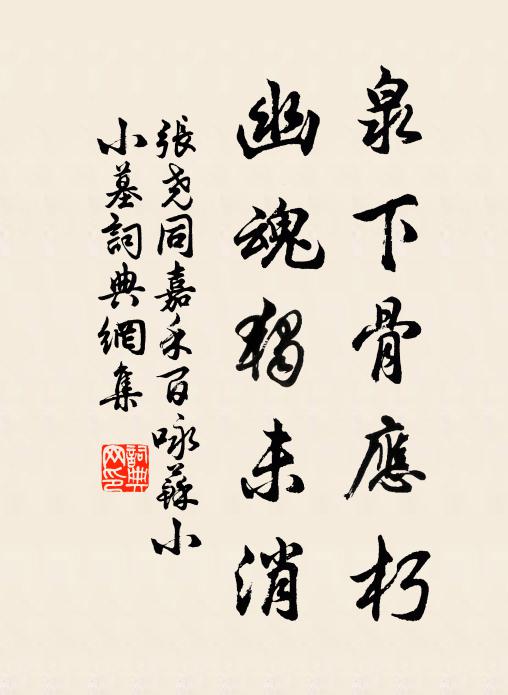 泉下骨應朽
幽魂獨未消
張堯同嘉禾百咏蘇小
小墓詞典網集
詞典网印